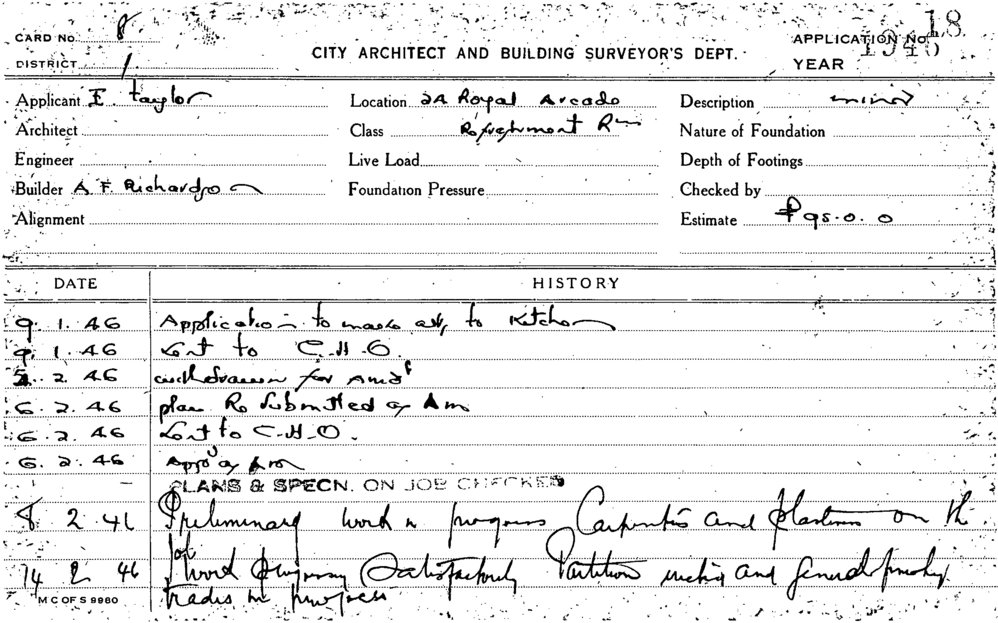 CARD No. 8
DISTRICT 1
CITY ARCHITECT AND BUILDING SURVEYOR'S DEPT.
APPLICATION No. 18
YEAR 1946
Applicant E. Taylor Location 2A Royal Arcade Description minor
Architect Class Refreshment Rm Nature of Foundation
Engineer Live Load Depth of Footings
Builder A F Richardson Foundation Pressure Checked by
Alignment Estimate £95.0.0
DATE HISTORY
9. 1. 46 Application to make alts to Kitchen
9. 1. 46 Sent to C.H.O.
5. 2. 46 withdrawn for Amdt
6. 2. 46 plan Re Submitted as Am
6. 2. 46 Sent to C.H.O.
6. 2. 46 Appd as Am
PLANS & SPECN. ON JOB CHECKED
8 2 46 Preliminary work in progress Carpenters and Plasterers on the
job
14 2 46 Work progressing Satisfactorily Partition and general finishing
trades in progress
M C OF S 9980